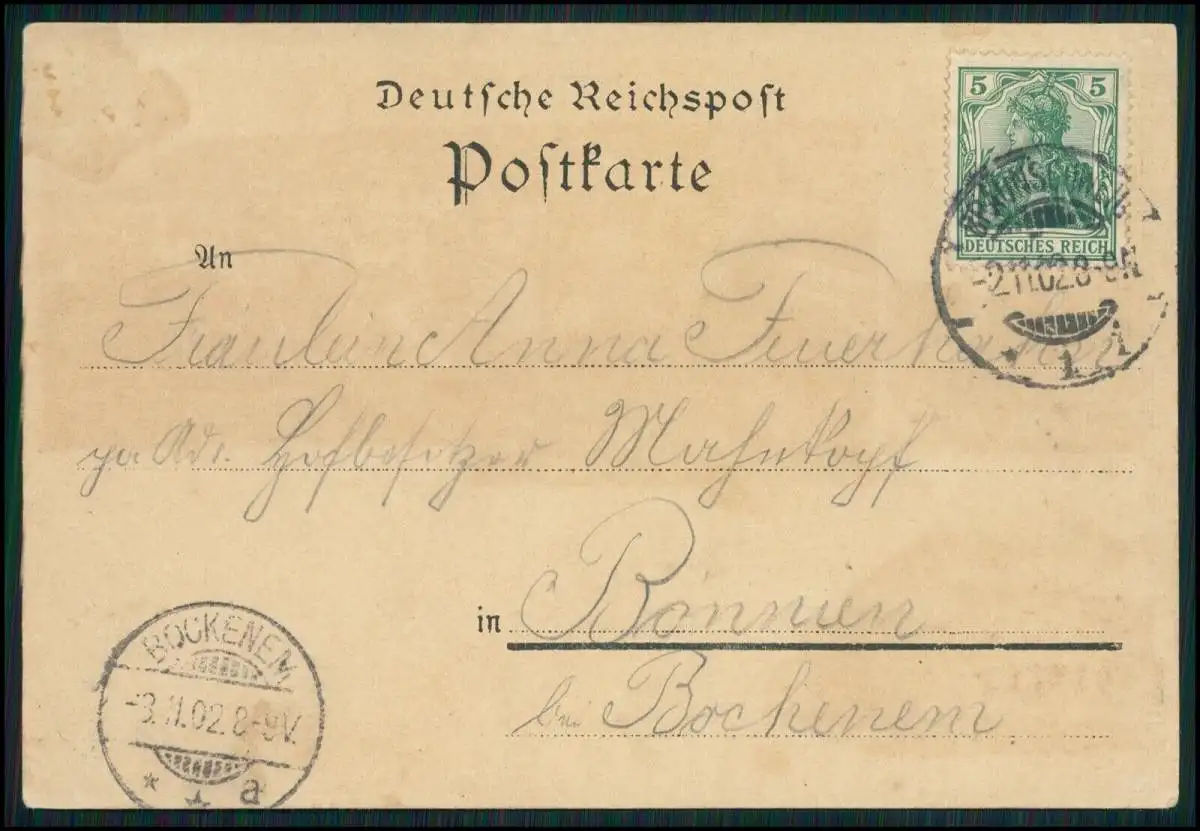 Deutſche Reichspoſt
Poſtkarte
5 5
DEUTSCHES REICH
BRAUNSCHWEIG
-2.11.02.8-9N
* 1 1
An
Fräulein Anna
pa Adr. Hofbesitzer Mahnkopf
in Bönnien
bei Bockenem
BOCKENEM
-3.11.02.8-9V.
* * a